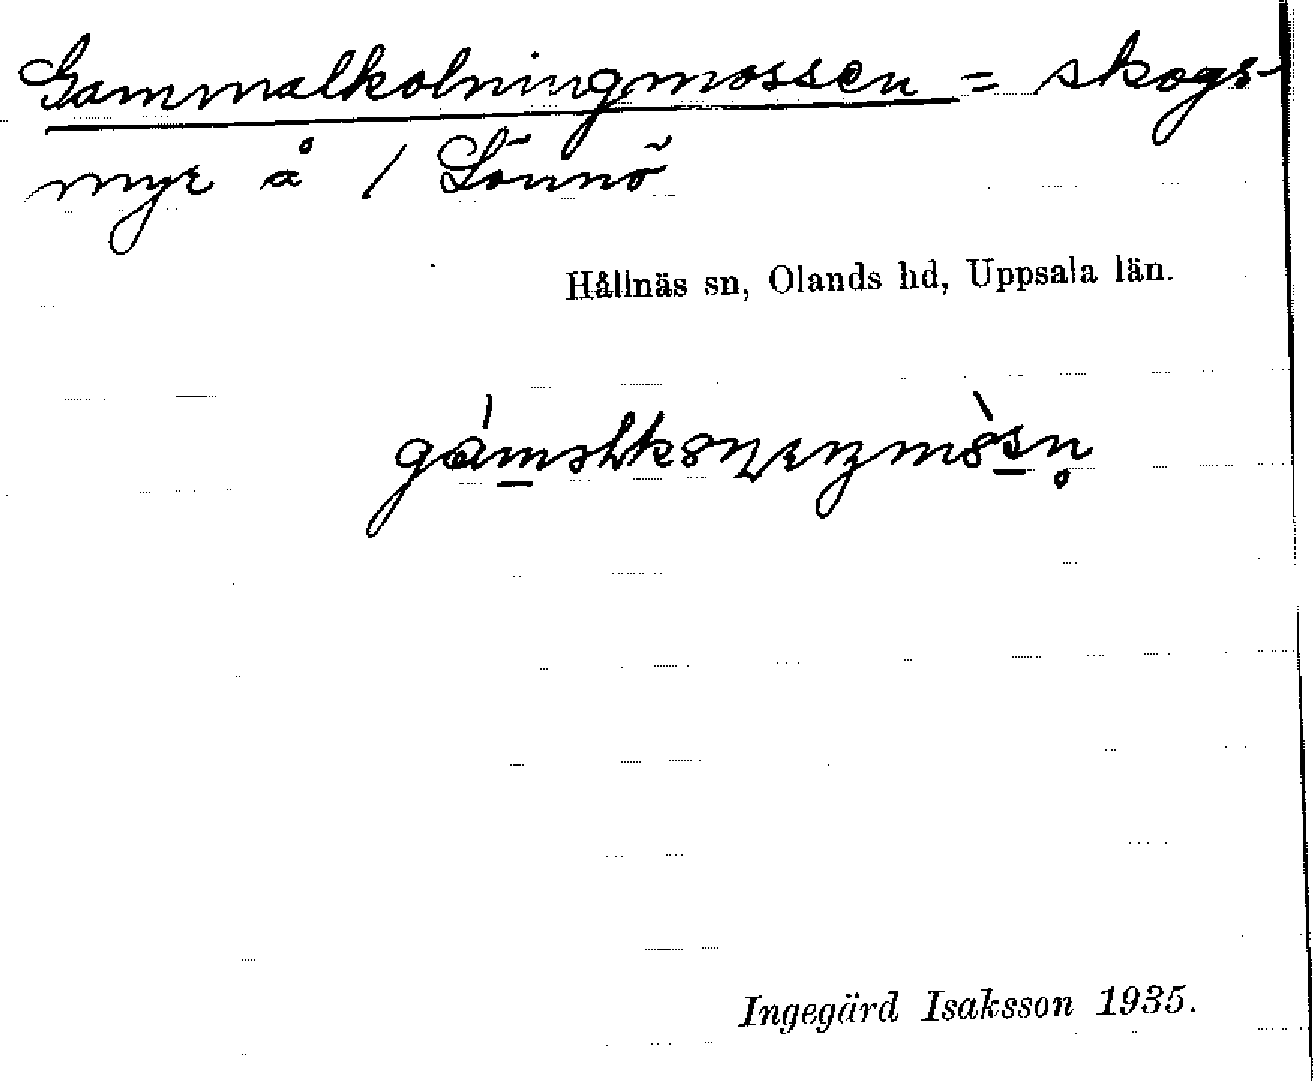 Gammalkolningmossen = skogs-
myr å / Lönnö
Hållnäs sn, Olands hd, Uppsala län.
Ingegärd Isaksson 1935.